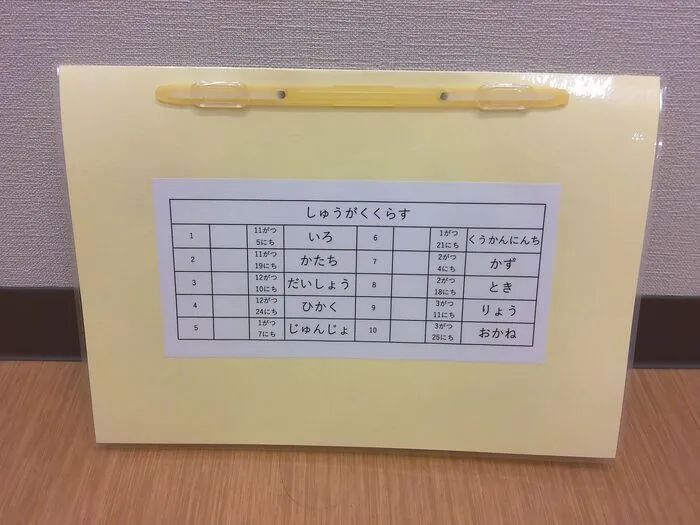 しゅうがくくらす
1 11がつ 5にち いろ 6 1がつ 21にち くうかんにんち
2 11がつ 19にち かたち 7 2がつ 4にち かず
3 12がつ 10にち だいしょう 8 2がつ 18にち とき
4 12がつ 24にち ひかく 9 3がつ 11にち りょう
5 1がつ 7にち じゅんじょ 10 3がつ 25にち おかね